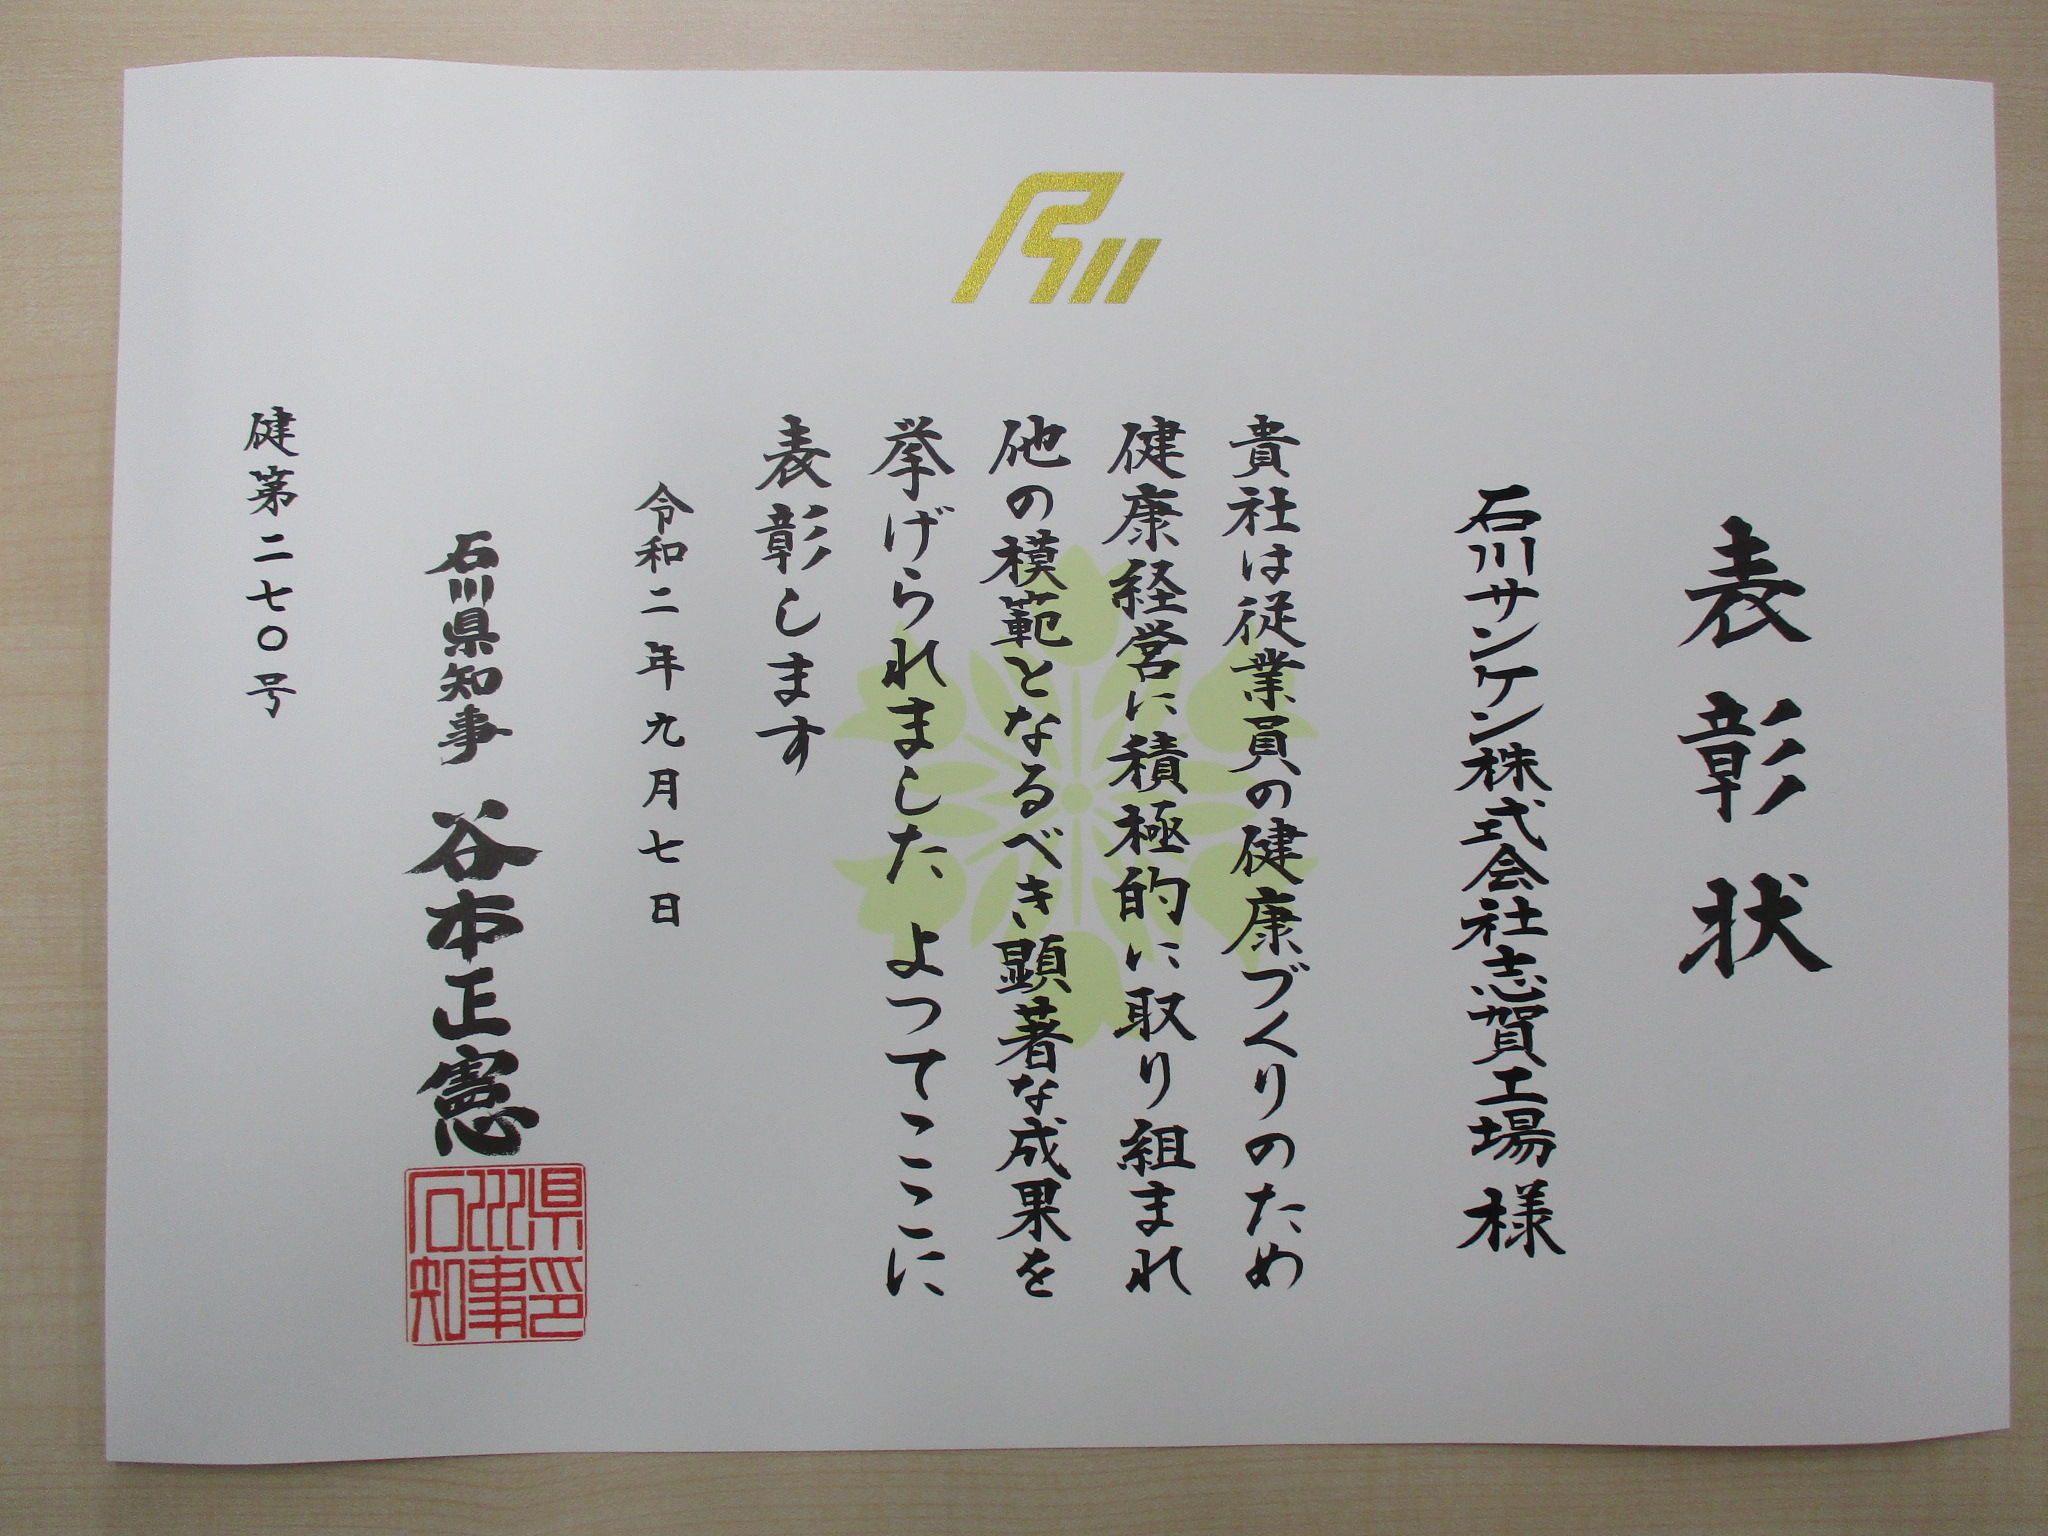 表彰状
石川サンケン株式会社志賀工場 様
貴社は従業員の健康づくりのため
健康経営に積極的に取り組まれ
他の模範となるべき顕著な成果を
挙げられました よつてここに
表彰します
令和二年九月七日
石川県知事 谷本正憲
石川県知事印
健第二七〇号